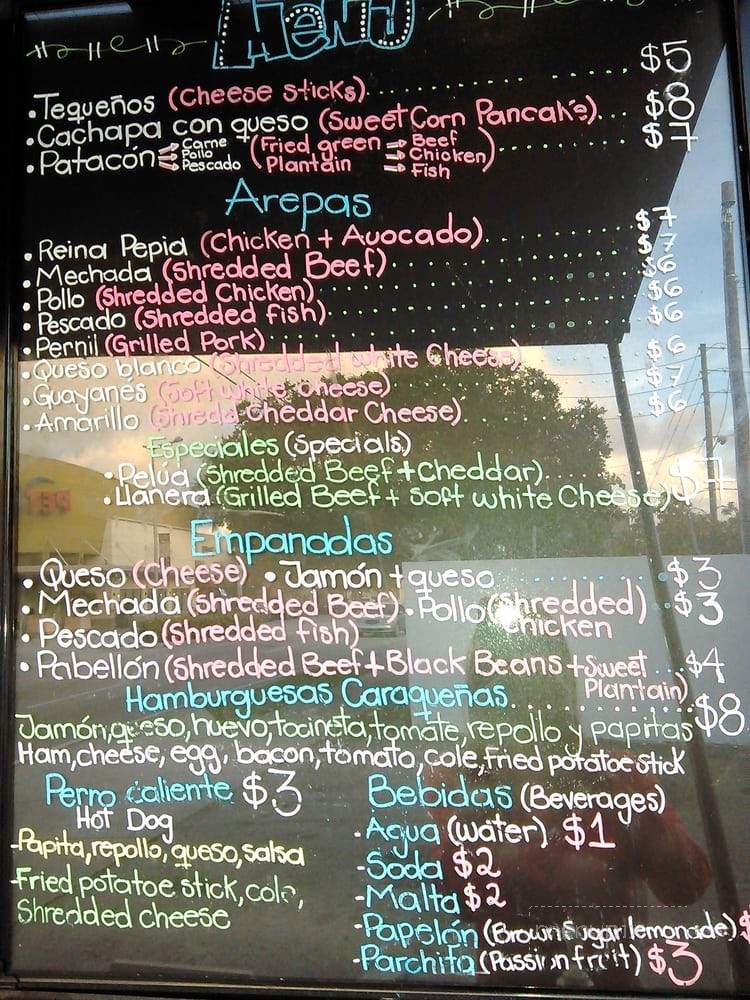 Menu
• Tequeños (Cheese sticks) $5
• Cachapa con queso (Sweet Corn Pancake's) $8
• Patacón Carne Pollo Pescado (Fried green Plantain Beef Chicken Fish) $7
Arepas
• Reina Pepia (Chicken + Avocado) $7
• Mechada (Shredded Beef) $7
• Pollo (Shredded Chicken) $6
• Pescado (Shredded fish) $6
• Pernil (Grilled Pork) $6
• Queso blanco (Shredded white Cheese) $6
• Guayanés (Soft white Cheese) $7
• Amarillo (Shreds Cheddar Cheese) $6
Especiales (Specials)
• Pelúa (Shredded Beef + Cheddar)
• Llanera (Grilled Beef + Soft white Cheese) $7
Empanadas
• Queso (Cheese) • Jamón + queso $3
• Mechada (Shredded Beef) • Pollo (Shredded Chicken) $3
• Pescado (Shredded fish)
• Pabellón (Shredded Beef + Black Beans + Sweet Plantain) $4
Hamburguesas Caraqueñas $8
Jamón, queso, huevo, tocineta, tomate, repollo y papitas
Ham, cheese, egg, bacon, tomato, cole, fried potatoe stick
Perro caliente $3
Hot Dog
-Papita, repollo, queso, salsa
-Fried potatoe stick, cole,
Shredded cheese
Bebidas (Beverages)
-Agua (water) $1
-Soda $2
-Malta $2
-Papelón (Brown Sugar lemonade) $
-Parchita (Passion fruit) $3